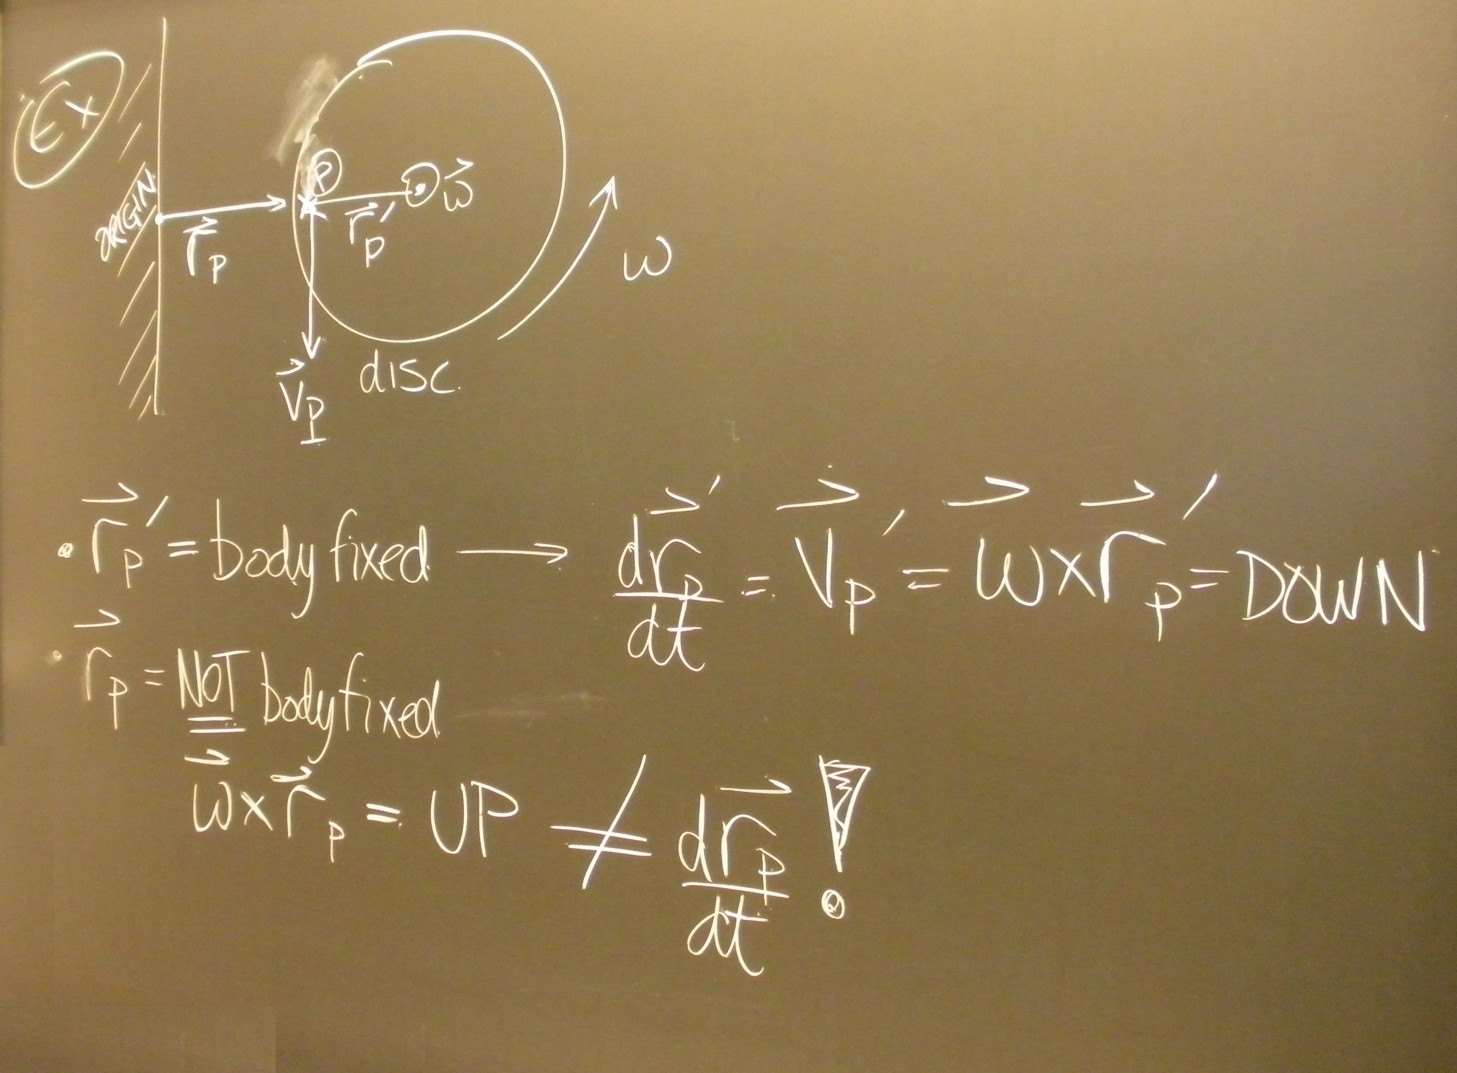 EX
P
ω⃗
ORIGIN
r⃗_P
r⃗_P′
ω
V⃗_P
disc.
• r⃗_P′ = body fixed ⟶ dr⃗_P′/dt = V⃗_P′ = ω⃗ × r⃗_P′ = DOWN
• r⃗_P = NOT body fixed
ω⃗ × r⃗_P = UP ≠ dr⃗_P/dt !